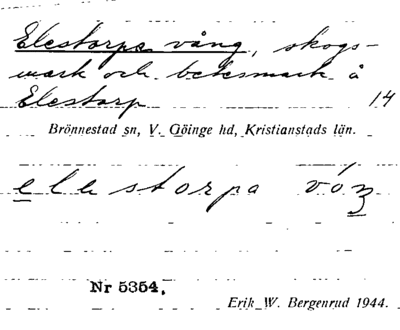 Elestorps vång, skogs-
mark och betesmark å
Elestorp 14
Brönnestad sn, V. Göinge hd, Kristianstads län.
elestorpa
Nr 5354.
Erik W. Bergenrud 1944.